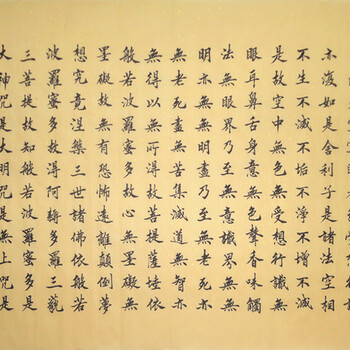 亦復如是舍利子是諸法空相
不生不滅不垢不淨不增不減
是故空中無色無受想行識無
眼耳鼻舌身意無色聲香味觸
法無眼界乃至無意識界無無
明亦無無明盡乃至無老死亦
無老死盡無苦集滅道無智亦
無得以無所得故菩提薩埵依
般若波羅蜜多故心無罣礙無
罣礙故無有恐怖遠離顛倒夢
想究竟涅槃三世諸佛依般若
波羅蜜多故得阿耨多羅三藐
三菩提故知般若波羅蜜多是
大神咒是大明咒是無上咒是